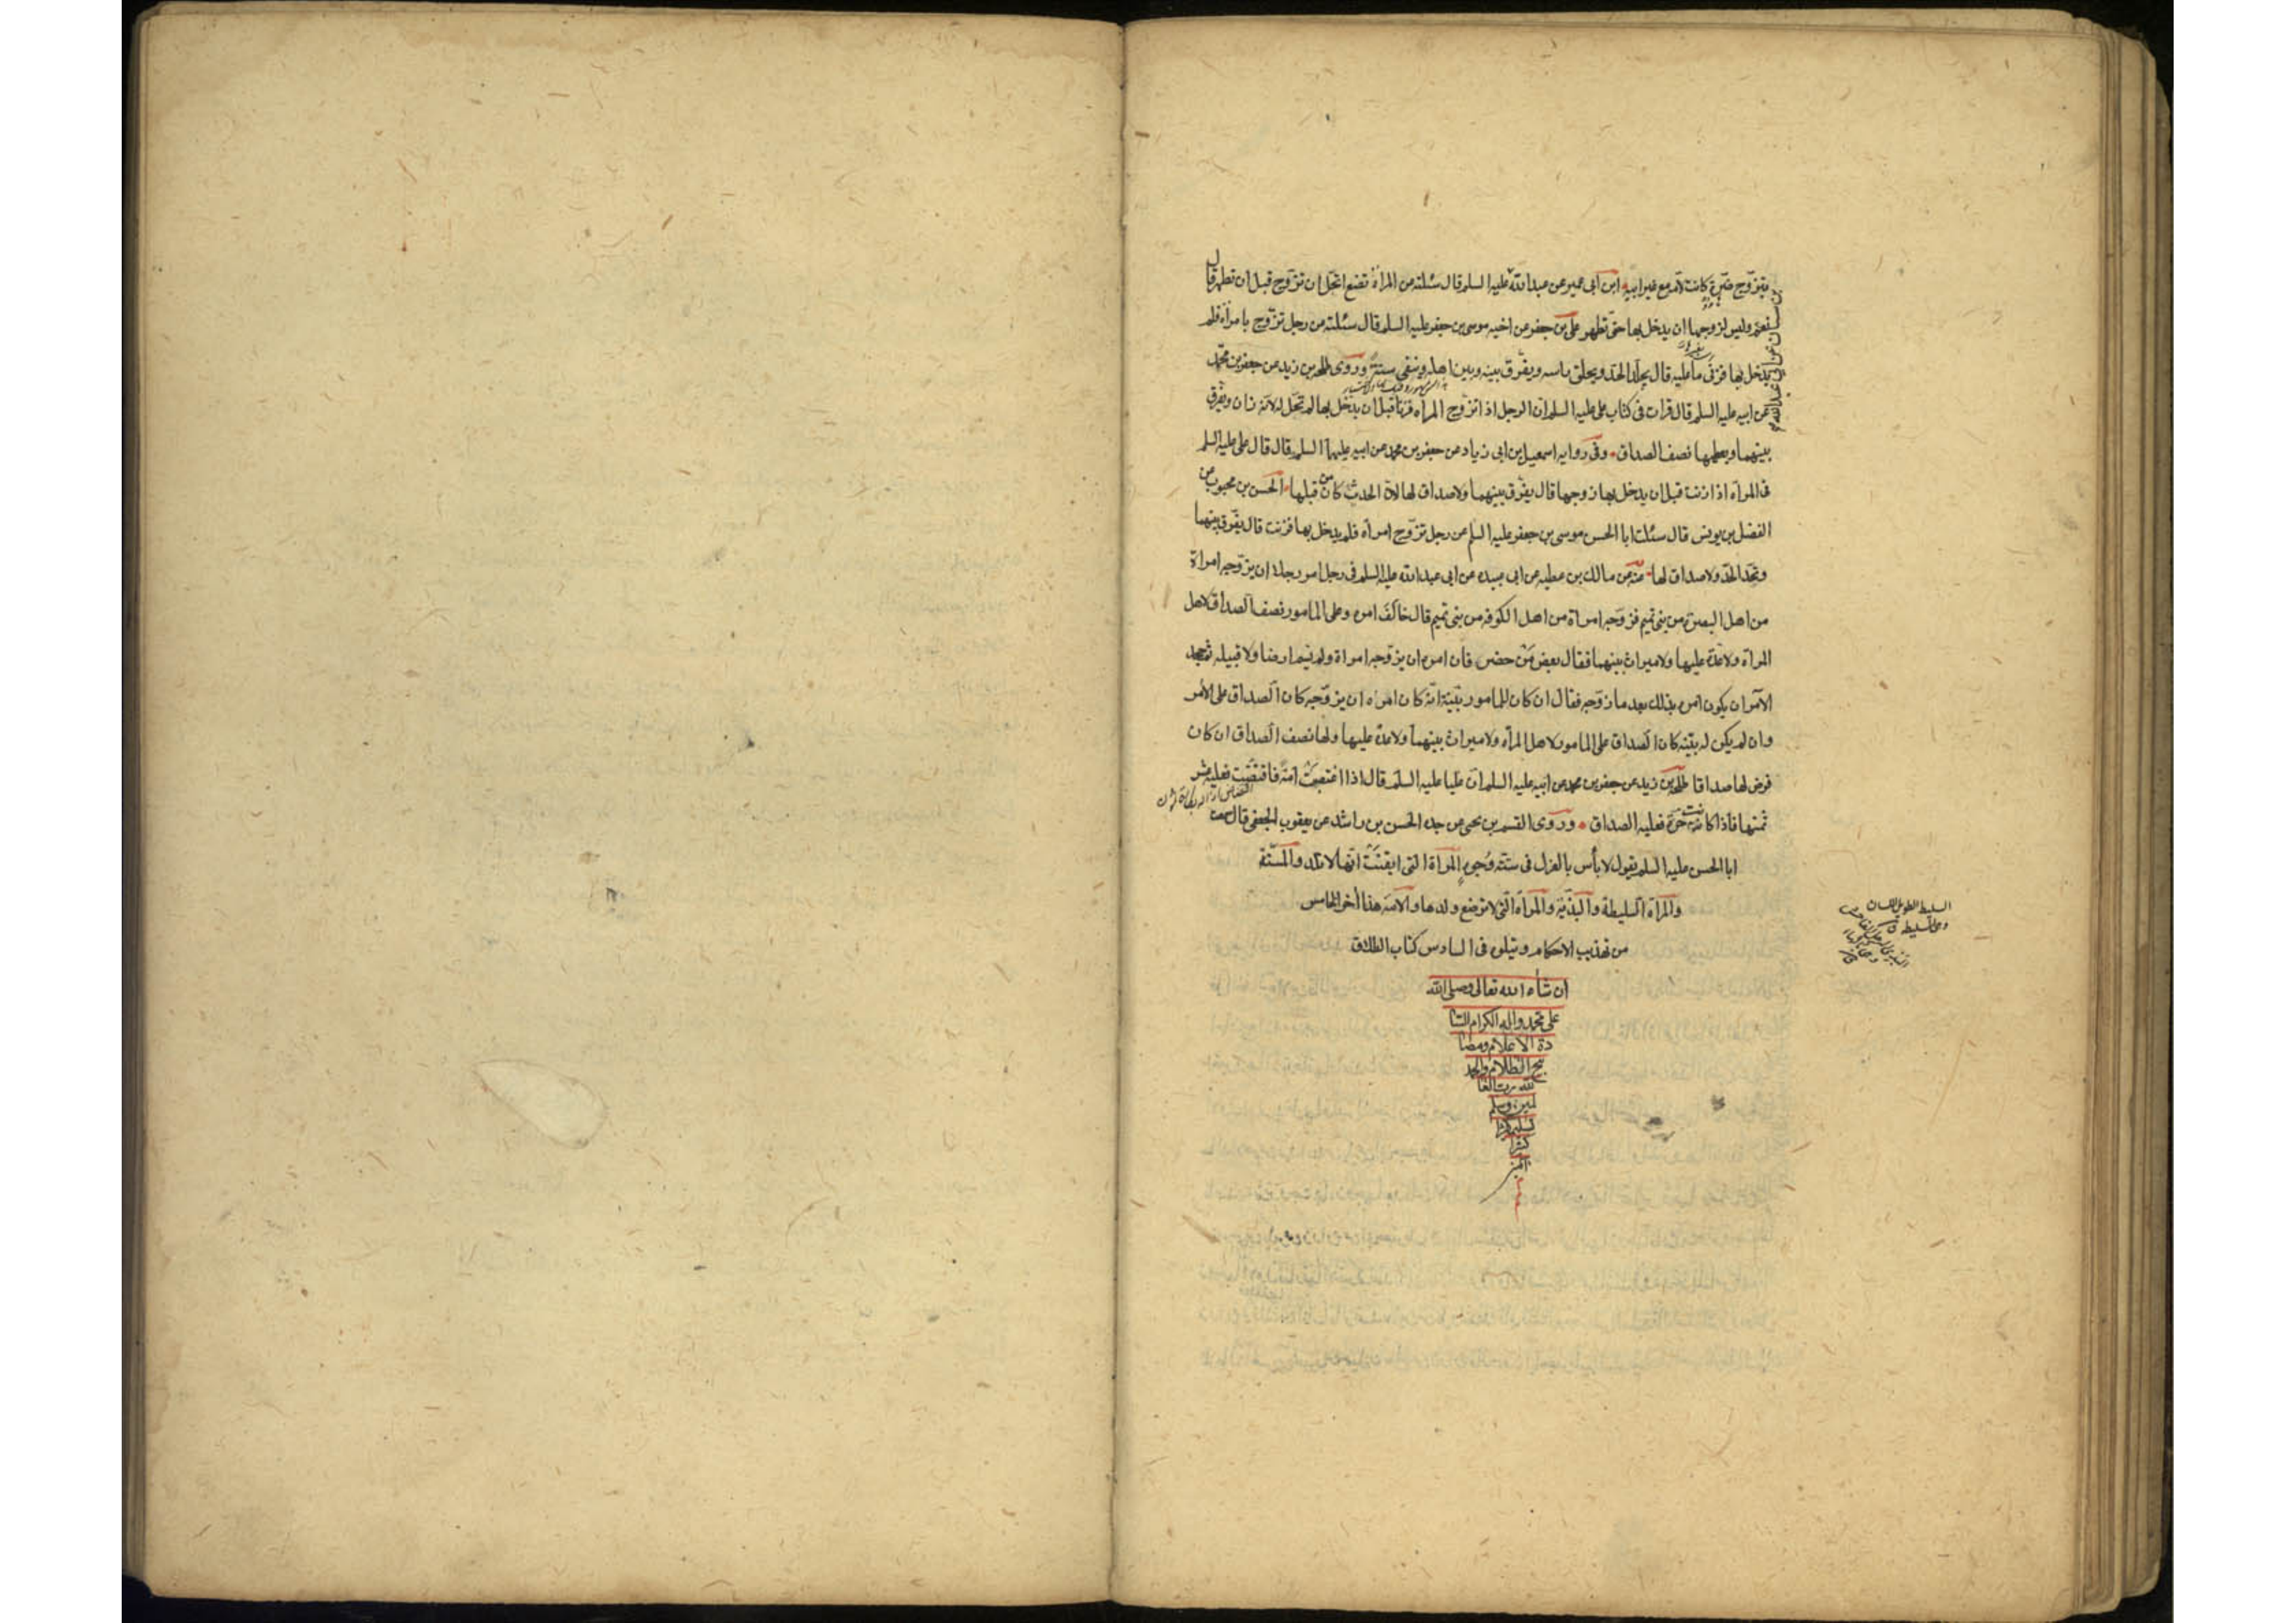 يتزوج ضرة كانت لامه مع غير ابيه ابن ابى عمير عن عبدالله عليه السلم قال سئلته عن المراة تضع اتحل ان تزوج قبل ان تطهر قال
نعم وليس لزوجها ان يدخل بها حتى تطهر على بن جعفر عن اخيه موسى بن جعفر عليه السلم قال سئلته عن رجل تزوج بامراة فلم
يدخل بها فزنى ما عليه قال يجلد الحد ويحلق راسه ويفرق بينه وبين اهله وينفى سنة وروى طلحه بن زيد عن جعفر بن محمد
عن ابيه عليه السلم قال قرات فى كتاب على عليه السلم ان الرجل اذا تزوج المراه فزنا قبل ان يدخل بها لم تحل له لانه زان ويفرق
بينهما ويعطيها نصف الصداق وفى روايه اسمعيل بن ابى زياد عن جعفر بن محمد عن ابيه عليهما السلم قال قال على عليه السلم
فى المرأه اذا زنت قبل ان يدخل بها زوجها قال يفرق بينهما ولا صداق لها لان الحدث كان من قبلها الحسن بن محبوب عن
الفضل بن يونس قال سئلت ابا الحسن موسى بن جعفر عليه السلم عن رجل تزوج امراه فلم يدخل بها فزنت قال يفرق بينهما
وتحد الحد ولا صداق لها عنه عن مالك بن عطيه عن ابى عبيده عن ابى عبدالله عليه السلم فى رجل امر رجلا ان يزوجه امراة
من اهل البصرة من بنى تميم فزوجه امراة من اهل الكوفه من بنى تميم قال خالف امره وعلى المامور نصف الصداق لاهل
المراه ولا عدة عليها ولا ميراث بينهما فقال بعض من حضر فان امره ان يزوجه امراة ولم يسم ارضا ولا قبيله ثم جحد
الآمر ان يكون امره بذلك بعد ما زوجه فقال ان كان للمامور بينة انه كان امره ان يزوجه كان الصداق على الامر
وان لم يكن له بينه كان الصداق على المامور لاهل المرأه ولا ميراث بينهما ولا عدة عليها ولها نصف الصداق ان كان
فرض لها صداقا طلحه بن زيد عن جعفر بن محمد عن ابيه عليه السلم ان عليا عليه السلم قال اذا اغتصبت امة فاقتضت فعليه عشر
ثمنها فاذا كانت حرة فعليه الصداق وروى القسم بن يحيى عن جده الحسن بن راشد عن يعقوب الجعفى قال سمعت
ابا الحسن عليه السلم يقول لا بأس بالعزل فى ستة وجوه المرأة التى ايقنت انها لا تلد والمسنة
والمرأة السليطة والبذية والمرأة التى لا ترضع ولدها والامة هذا آخر الخامس
من تهذيب الاحكام ويتلوه فى السادس كتاب الطلاق
ان شاء الله تعالى وصلى الله
على محمد واله الكرام السا
دة الاعلام ومصا
بيح الظلام والحمد
لله رب العا
لمين وسلم
تسليما كثيرا
كثيرا
السليط الطويل اللسان
وهى سليطة